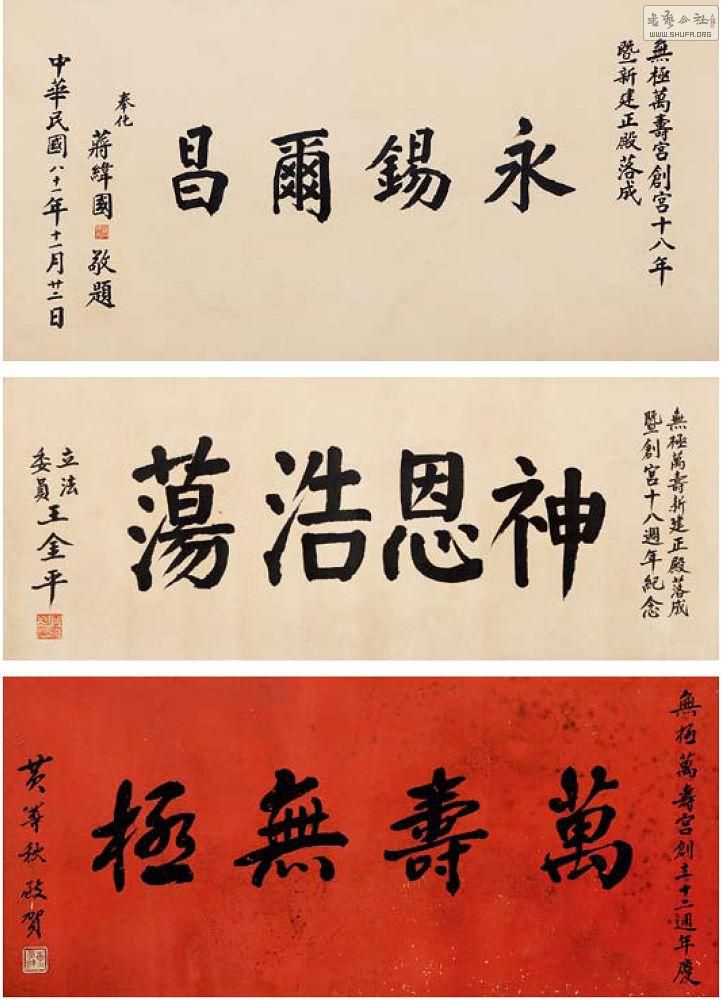 WWW.SHUFA.ORG
無極萬壽宮創宮十八年
暨新建正殿落成
永錫爾昌
奉化 蔣緯國 敬題
中華民國八十一年十一月廿二日
無極萬壽新建正殿落成
暨創宮十八週年紀念
神恩浩蕩
立法
委員王金平
無極萬壽宮創立十二週年慶
萬壽無極
黃尊秋敬賀